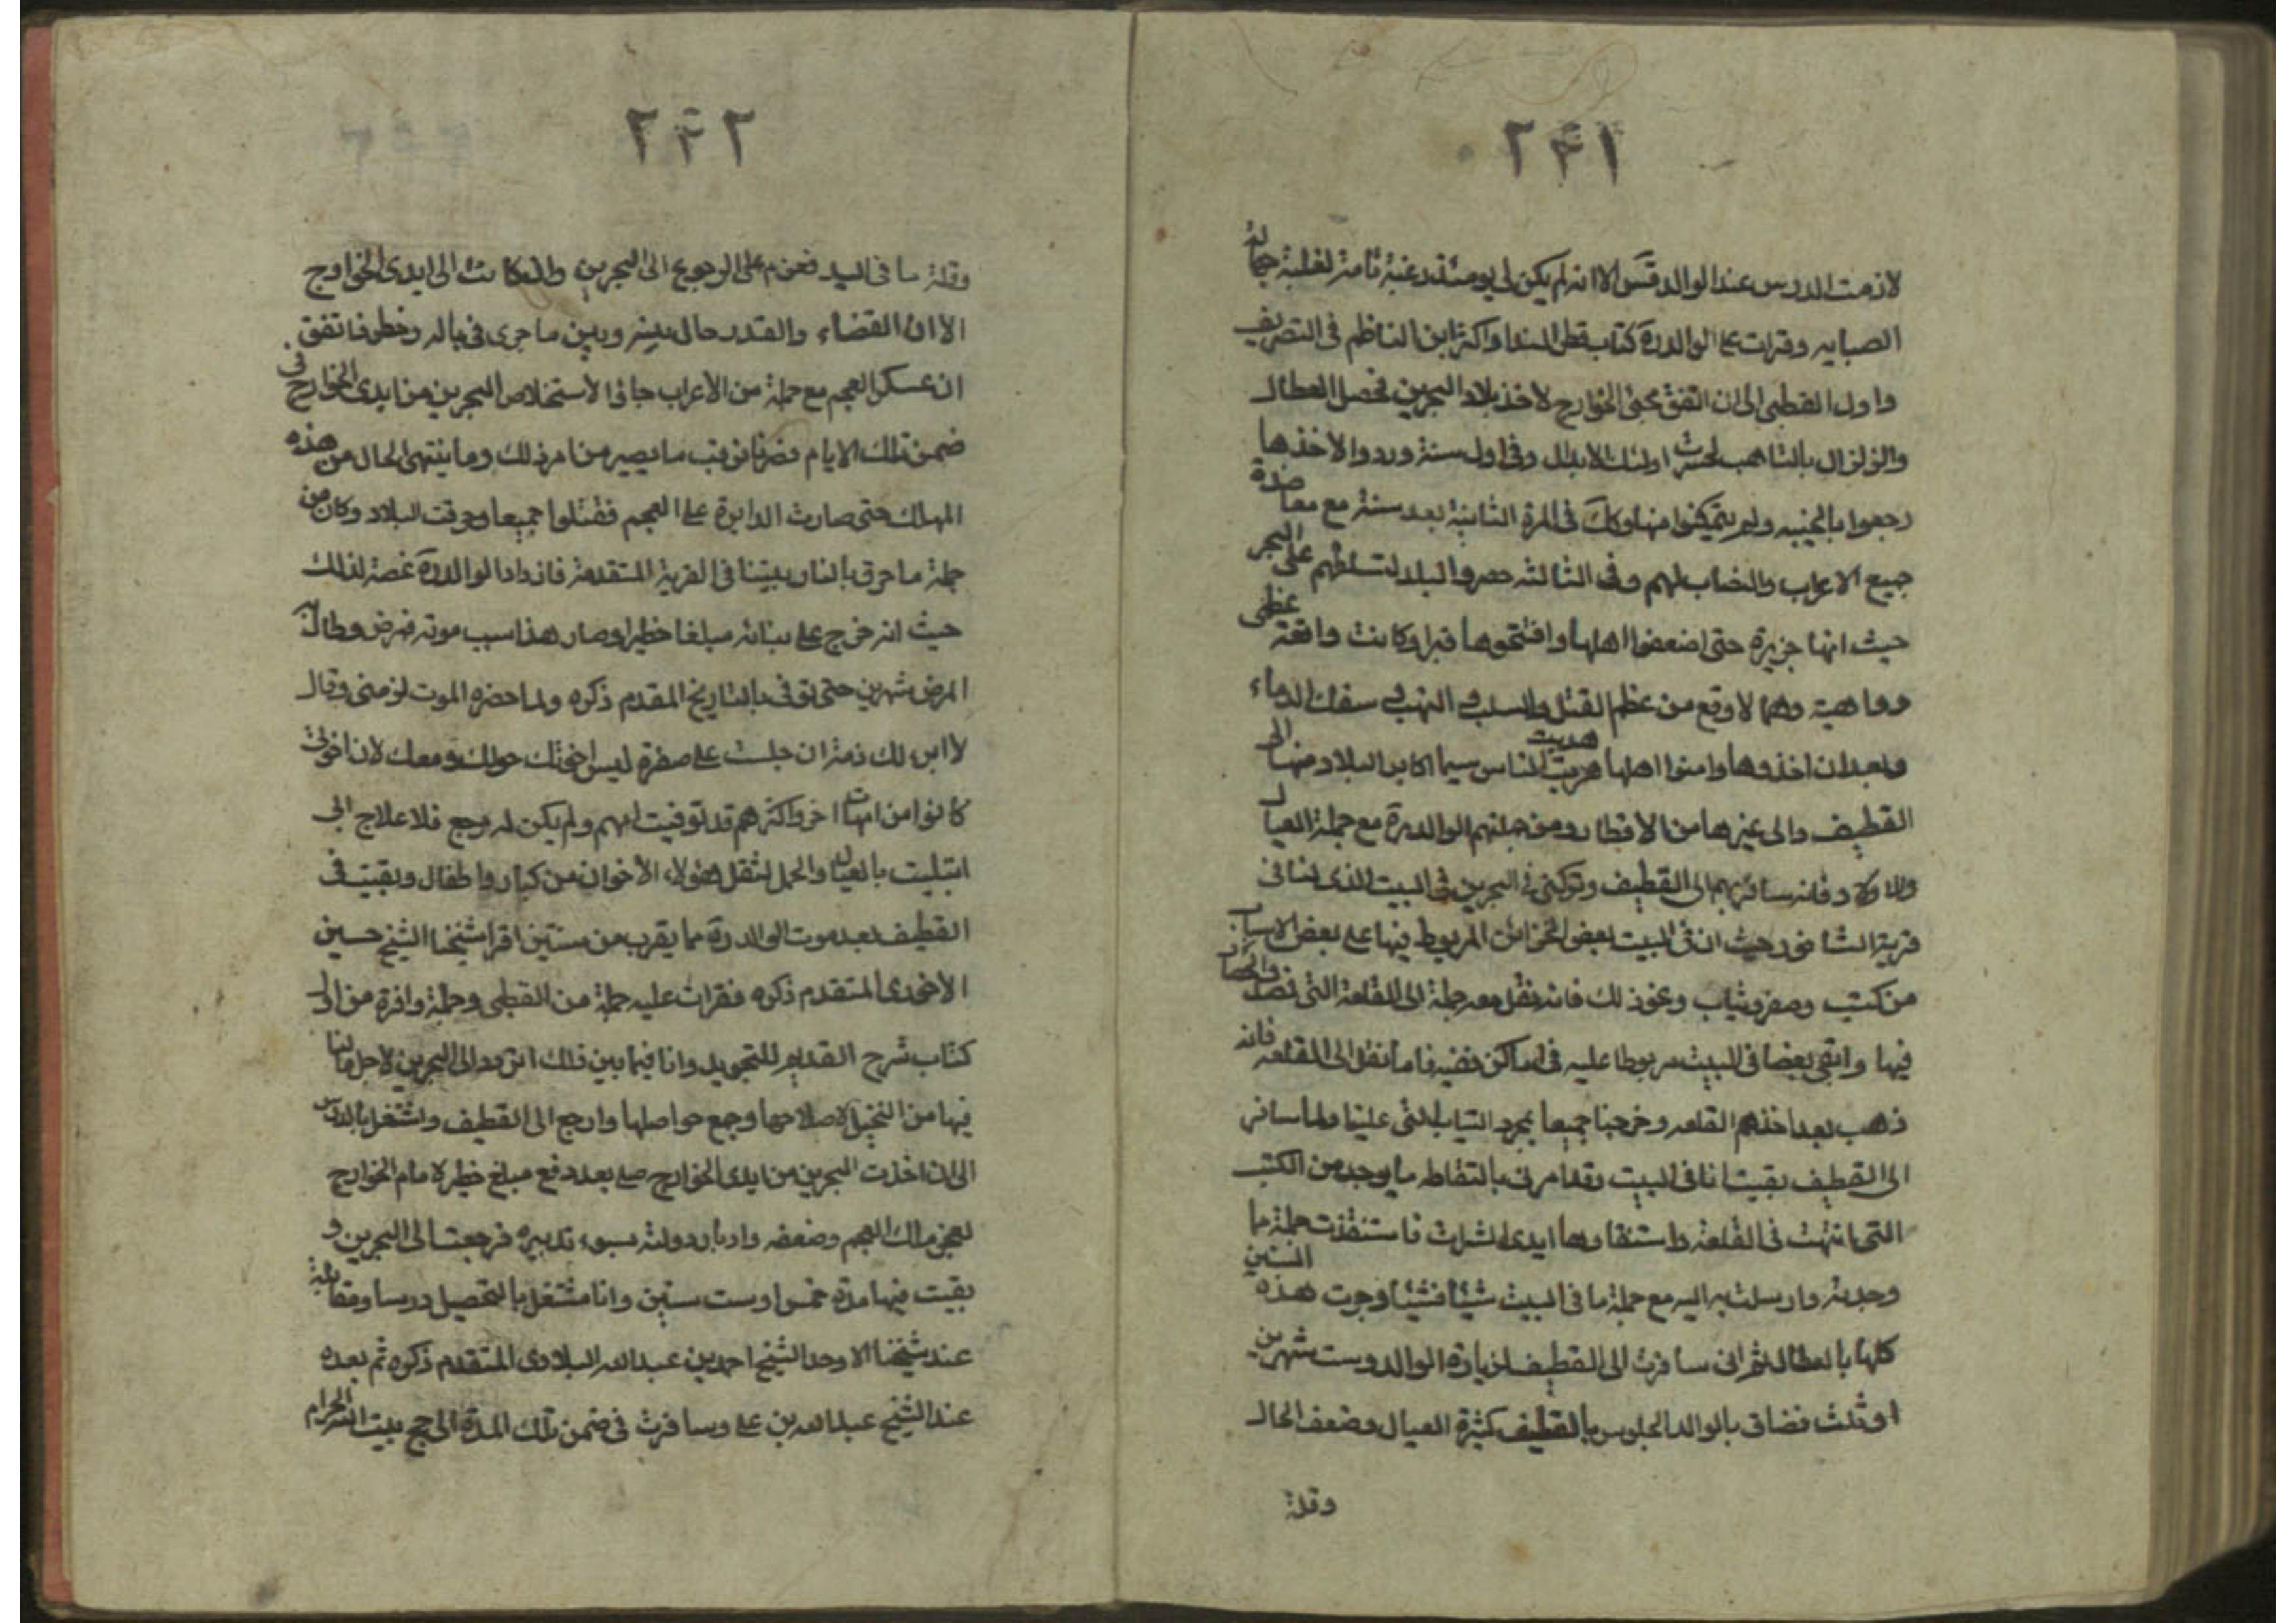 ٢٤١
لازمت الدرس عند الوالد قدس الا انه لم يكن لي يومئذ رغبة تامة لغلبة جهالة
الصبايه وقرات على الوالد ره كتاب قطر الندا واكثر ابن الناظم في التصريف
واول القطبي الى ان اتفق مجئ الخوارج لاخذ بلاد البحرين فحصل العطال
والزلزال بالتاهب لحرب اولئك الانذال وفي اول سنة وردوا لاخذها
رجعوا بالخيبه ولم يتمكنوا منها وكك في المرة الثانية بعد سنة مع معاضدة
جميع الاعراب والنصاب لهم وفي الثالثه حصروا البلد لتسلطهم على البحر
حيث انها جزيرة حتى اضعفوا اهلها وافتتحوها قهرا وكانت واقعة عظمى
وداهية دهما لاوقع من عظم القتل والسلب والنهب وسفك الدماء
وبعد ان اخذوها وامنوا اهلها هربت الناس سيما اكابر البلاد منها الى
القطيف والى غيرها من الاقطار ومن جملتهم الوالد ره مع جملة العيال
والاولاد فانه سافر بهم الى القطيف وتركني في البحرين في البيت الذي لنا في
قرية الشاخوره حيث ان في البيت بعض الخزائن المربوط فيها على بعض الاسباب
من كتب وصفر وثياب ونحو ذلك فانه نقل معه جملة الى القلعة التي قصد الحصار
فيها وابقى بعضا في البيت مربوطا عليه في اماكن خفيه فاما نقل الى القلعه فانه
ذهب بعد اخذهم القلعه وخرجنا جميعا بمجرد الثياب التي علينا ولما سافر
الى القطيف بقيت انا في البيت وقد امرني بالتقاط ما يوجد من الكتب
التي انتهبت في القلعة واستنقاذها من ايدي الشراة فاستنقذت جملة مما
وجدته وارسلت به اليه مع جملة ما في البيت شيئا فشيئا وجرت هذه السنين
كلها بالعطال ثم اني سافرت الى القطيف لزيارة الوالد وبقيت شهرين
او ثلث فضاق بالوالد الجلوس بالقطيف كثرة العيال وضعف الحال
وقلة
٢٤٢
وقلة ما في اليد فعزم على الرجوع الى البحرين وان كانت الى ايدي الخوارج
الا ان القضاء والقدر حال بينه وبين ما جرى في باله وخطر فاتفق
ان عسكر العجم مع جملة من الأعراب جاؤا لأستخلاص البحرين من ايدي الخوارج في
ضمن تلك الايام فصرنا نرقب ما يصير من امر ذلك وما ينتهي الحال من هذه
المهالك حتى صارت الدايرة على العجم فقتلوا جميعا وحرقت البلاد وكان من
جملة ما حرق بالنار بيتنا في القرية المتقدمة فازداد الوالد ره غصة لذلك
حيث انه خرج على بنائه مبلغا خطيرا وصار هذا سبب موته فمرض وطال به
المرض شهرين حتى توفى بالتاريخ المقدم ذكره ولما حضره الموت لزمني وقال
لا ابرء لك ذمة ان جلست على سفرة ليس اخوتك حولك ومعك لان اخوتي
كانوا من امهات اخر واكثرهم قد توفيت امهم ولم يكن له مرجع فلا علاج اني
ابتليت بالعيال والحمل لثقل هؤلاء الأخوان من كبار واطفال وبقيت في
القطيف بعد موت الوالد ره مما يقرب من سنتين اقرا شيخنا الشيخ حسين
الأخوى المتقدم ذكره فقرات عليه جملة من القطبي وجملة وافرة من اول
كتاب شرح القديم للتجريد وانا فيما بين ذلك اتردد الى البحرين لاجل ما لنا
فيها من النخيل لاصلاحها وجمع حواصلها وارجع الى القطيف واشتغل بالدرس
الى ان اخذت البحرين من ايدي الخوارج صلح بعد دفع مبلغ خطير لامام الخوارج
لعجز مالك العجم وضعفه وادبار دولته بسوء تدبيره فرجعت الى البحرين و
بقيت فيها مدة خمس او ست سنين وانا مشتغل بالتحصيل درسا ومقابلة
عند شيخنا الاوحد الشيخ احمد بن عبد الله البلادي المتقدم ذكره ثم بعده
عند الشيخ عبد الله بن علي وسافرت في ضمن تلك المدة الى حج بيت الله الحرام